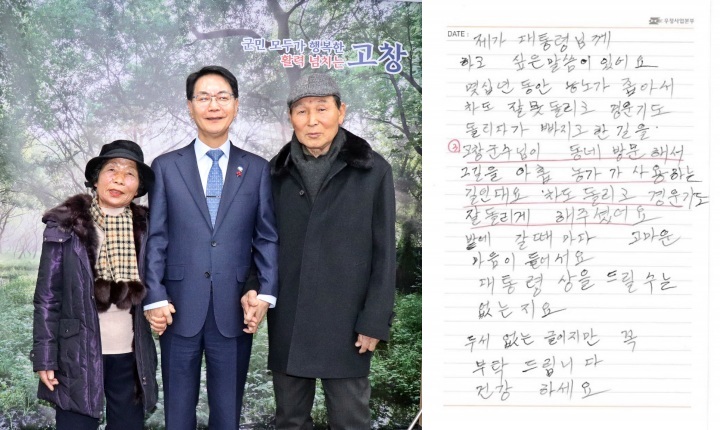 군민 모두가 행복한
활력 넘치는 고창
우정사업본부
DATE :
제가 대통령님께
하고 싶은말씀이 있어요
몇십년 동안 농노가 좁아서
차도 잘못 돌리고 경운기도
돌리다가 빠지고 한 길을
고창군수님이 동네 방문해서
그길을 아홉 농가가 사용하는
길인대요 차도 돌리고 경운기도
잘 돌리게 해주셨어요
밭에 갈때 마다 고마운
마음이 들어서요
대통령 상을 드릴 수는
없는 지요
두서 없는 글이지만 꼭
부탁 드립니다
건강 하세요